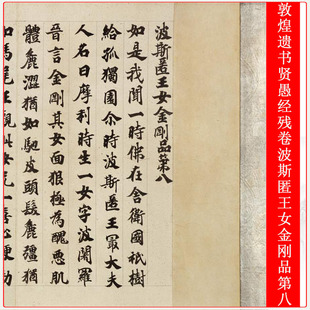 敦煌遗书贤愚经残卷波斯匿王女金刚品第八
波斯匿王女金剛品第八
如是我聞一時佛在舍衛國祇樹
給孤獨園尒時波斯匿王㝡大夫
人名曰摩利時生一女字波闍羅
晉言金剛其女面狠極為醜惡肌
體麁澀猶如馳皮頭髮麁彊猶
如馬尾王觀此女无一喜心便勅